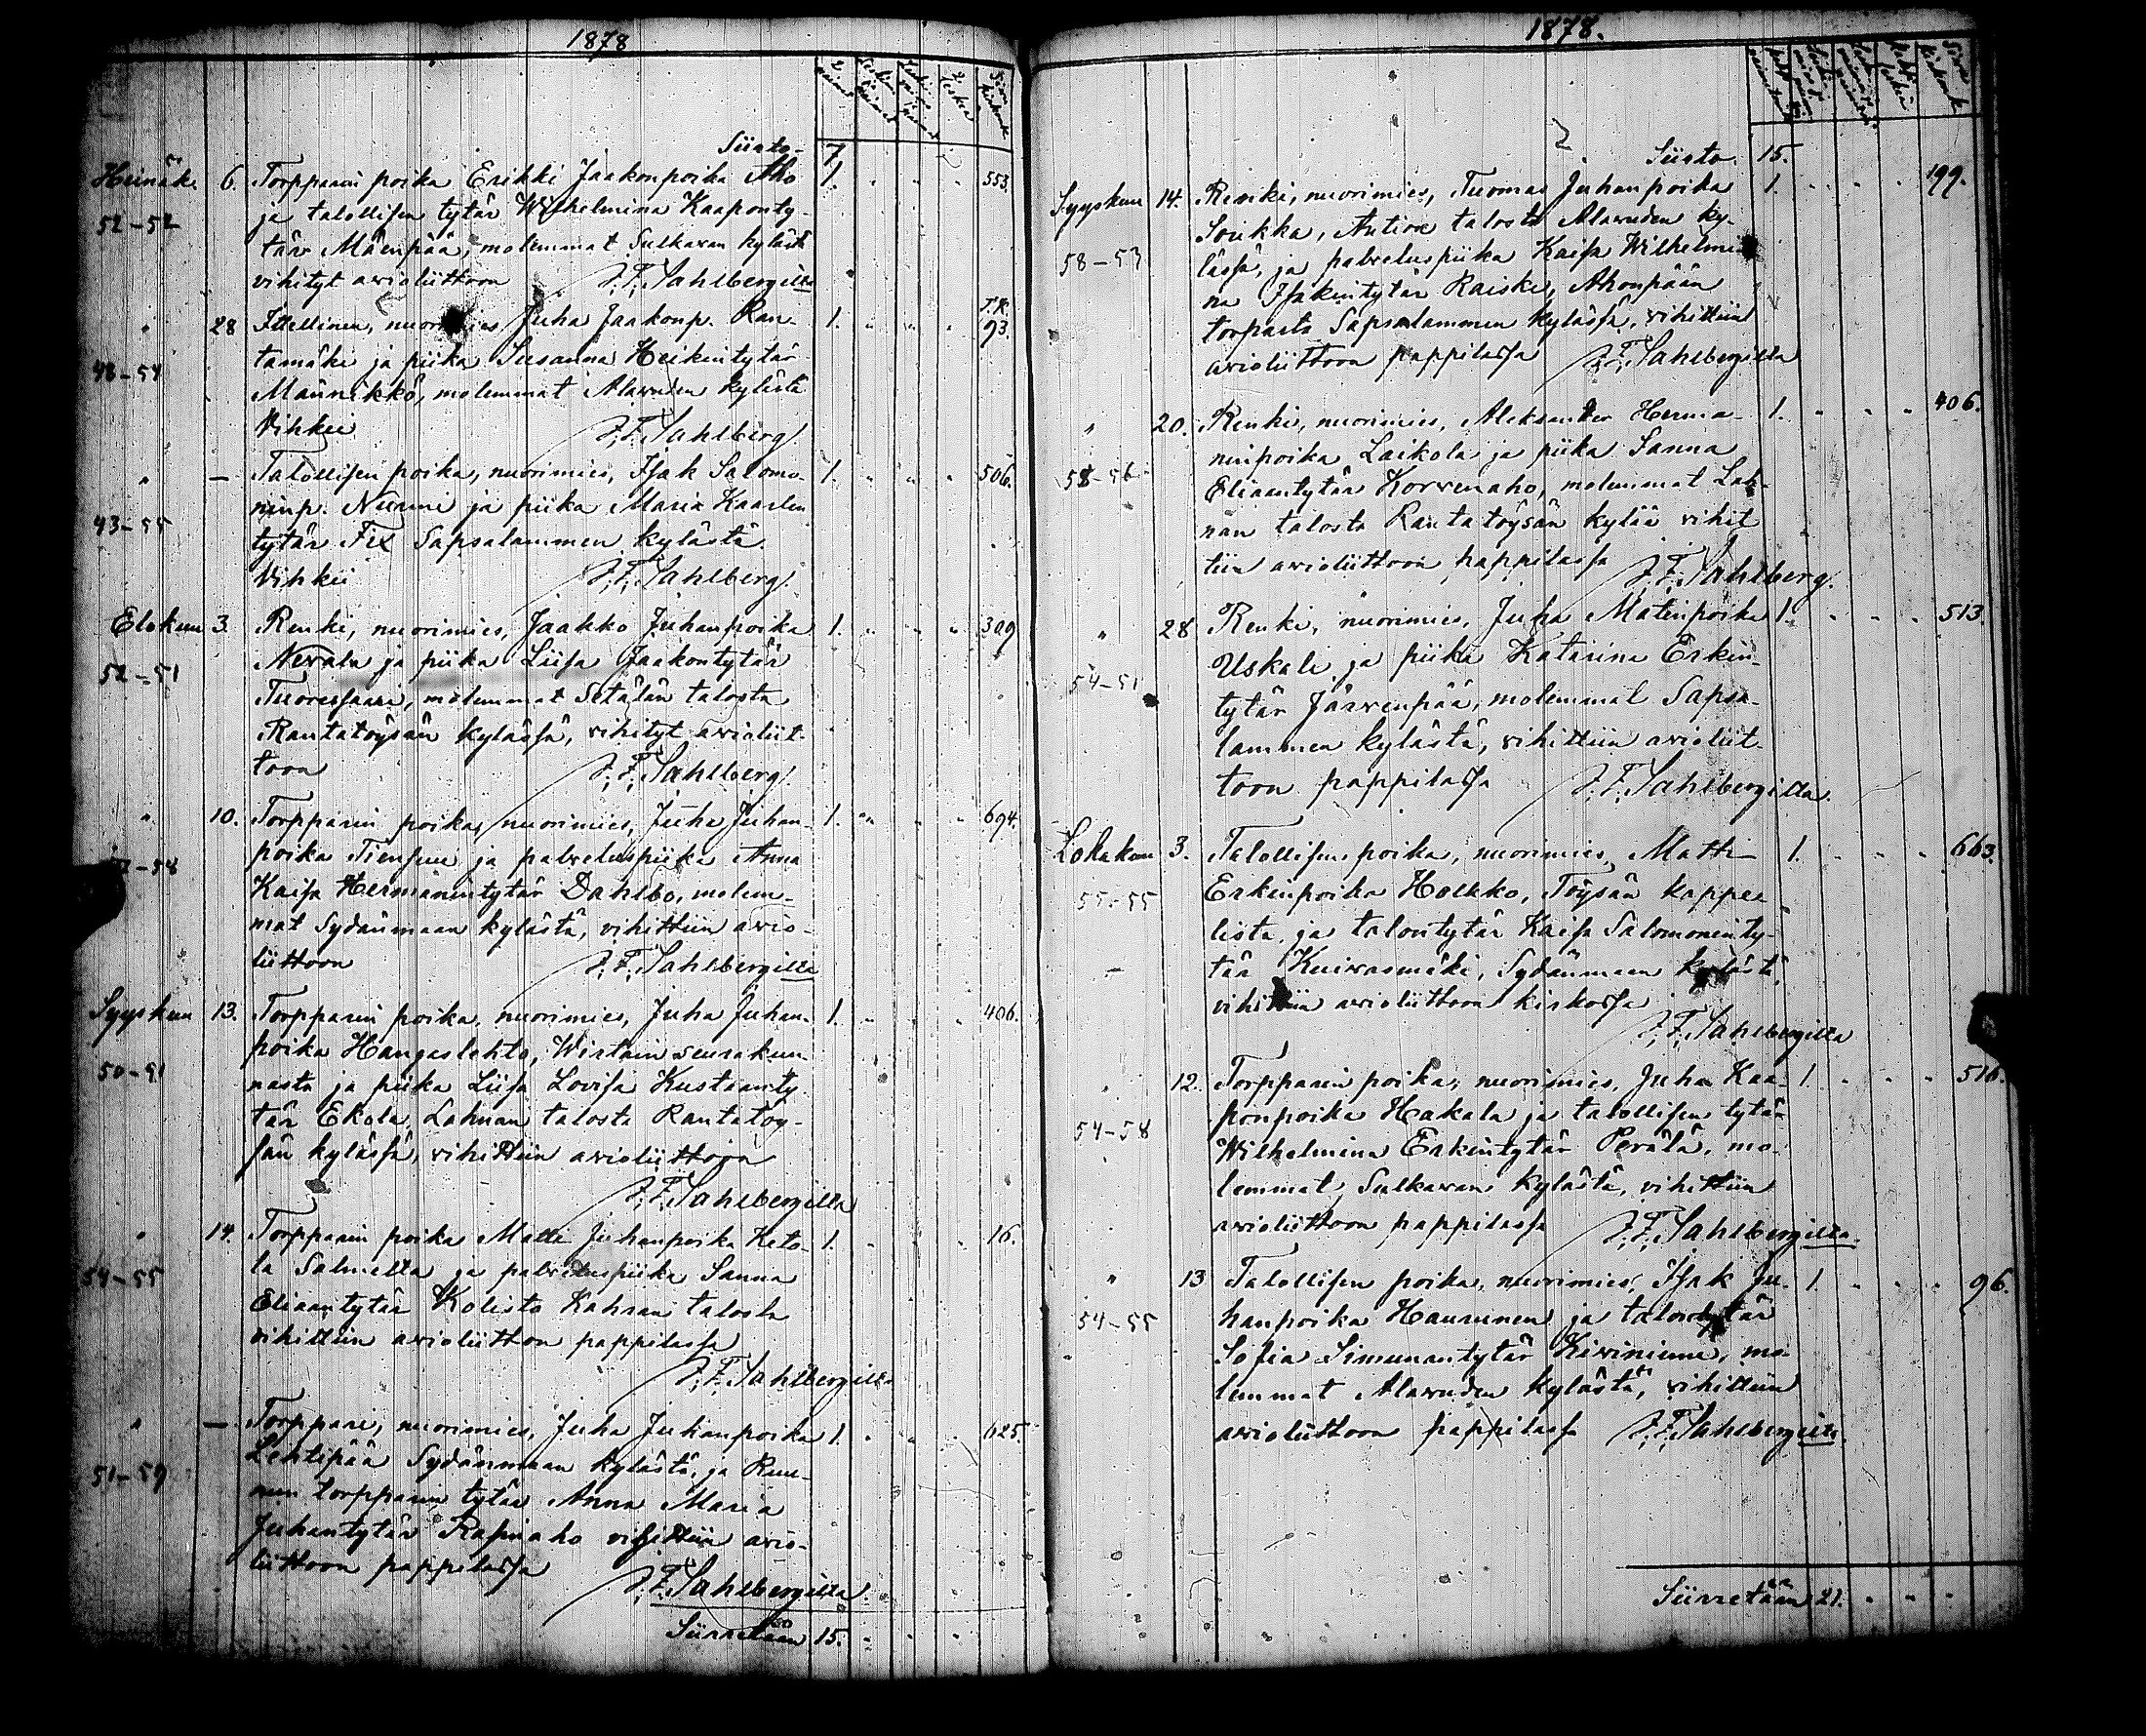 1878
Siirto 7
Heinäk. 6. Torpparin poika Erikki Jaakonpoika Aho 1. 553.
52-52 ja talollisen tytär Wilhelmina Kaaponty-
tär Mäenpää, molemmat Sulkavan kylästä
vihityt avioliittoon J.F. Sahlbergilta
" 28 Itellinen, nuorimies Juha Jaakonp. Ran- 1. T.K. 93.
48-54 tamäki ja piika Susanna Heikintytär
Männikkö, molemmat Alavuden kylästä
Vihkii J.F. Sahlberg.
" — Talollisen poika, nuorimies, Isak Salomo- 1. 506.
43-55 ninp. Niemi ja piika Maria Kaarlen
tytär Fex Sapsalammen kylästä.
Vihkii J.F. Sahlberg.
Elokuu 3. Renki, nuorimies, Jaakko Juhanpoika 1. 309
52-51 Nevala ja piika Liisa Jaakontytär
molemmat Setälän talosta
Rantatöysän kylässä, vihityt avioliit-
toon J.F. Sahlberg.
" 10. Torpparin poika, nuorimies, Juha Juhan- 1. 694.
poika Tiensuu ja palveluspiika Anna
Kaisa Hermanintytär Dahlbo, molem-
mat Sydänmaan kylästä, vihittiin avio-
liittoon J.F. Sahlbergilta
Syyskuu 13. Torpparin poika, nuorimies, Juha Juhan- 1. 406.
poika Hangaslehto, Wirtain seurakun-
nasta ja piika Liisa Lovisa Kustaanty
tär Ekola, Lahnan talosta Rantatöy-
sän kylässä, vihittiin avioliittoon
J.F. Sahlbergilta
" 14. Torpparin poika Matti Juhanpoika Keto- 1. 16.
54-55 la Salmelta ja palveluspiika Sanna
Eliaantytär Kolisto talosta
vihittiin avioliittoon pappilassa
J.F. Sahlbergilta
" — Torppari, nuorimies, Juha Juhanpoika 1. 625.
51-59 Lehtipää Sydänmaan kylästä, ja
torpparin tytär Anna Maria
Juhantytär vihittiin avio-
liittoon pappilassa
J.F. Sahlbergilta.
Siirretään 15.
1878.
Siirto. 15.
Syyskuu 14. Renki, nuorimies, Tuomas Juhanpoika 1. 199.
Soukka, talosta Alavuden ky-
58-53 lässä, ja palveluspiika Kaisa Wilhelmi-
na Isakintytär Raiski, Ahonpään
torpasta Sapsalammen kylässä, vihittiin
avioliittoon pappilassa J.F. Sahlbergilta
" 20. Renki, nuorimies, Aleksander Herma- 1. 406.
58-56 ninpoika Laikola ja piika Sanna
Eliaantytär Korvenaho, molemmat Lah-
nan talosta Rantatöysän kylää vihit
tiin avioliittoon pappilassa
J.F. Sahlberg.
" 28 Renki, nuorimies, Juha Matinpoika 1. 513.
Uskali ja piika Katarina Erkin-
54-51 tytär Järvenpää, molemmat Sapsa-
lammen kylästä, vihittiin avioliit-
toon pappilassa J.F. Sahlbergilta.
Lokakuu 3. Talollisen poika, nuorimies, Matti 1. 663.
55-55 Erkinpoika Holkko, Töysän kappe
lista, ja talontytär Kaisa Salomoninty-
tär Kuivasmäki, Sydänmaan kylästä
vihittiin avioliittoon kirkossa
J.F. Sahlbergilta
" 12. Torpparin poika, nuorimies, Juha Kaa- 1. 516.
54-58 ponpoika Hakala ja talollisen tytär
Wilhelmina Erkintytär Perälä, mo-
lemmat Sulkavan kylästä, vihittiin
avioliittoon pappilassa J.F. Sahlbergilta.
" 13 Talollisen poika, nuorimies, Isak Ju- 1. 96.
54-55 hanpoika Haurunen ja talontytär
Sofia Simunantytär Kiviniemi, mo-
lemmat Alavuden kylästä, vihittiin
avioliittoon pappilassa J.F. Sahlbergilta.
Siirretään 21.